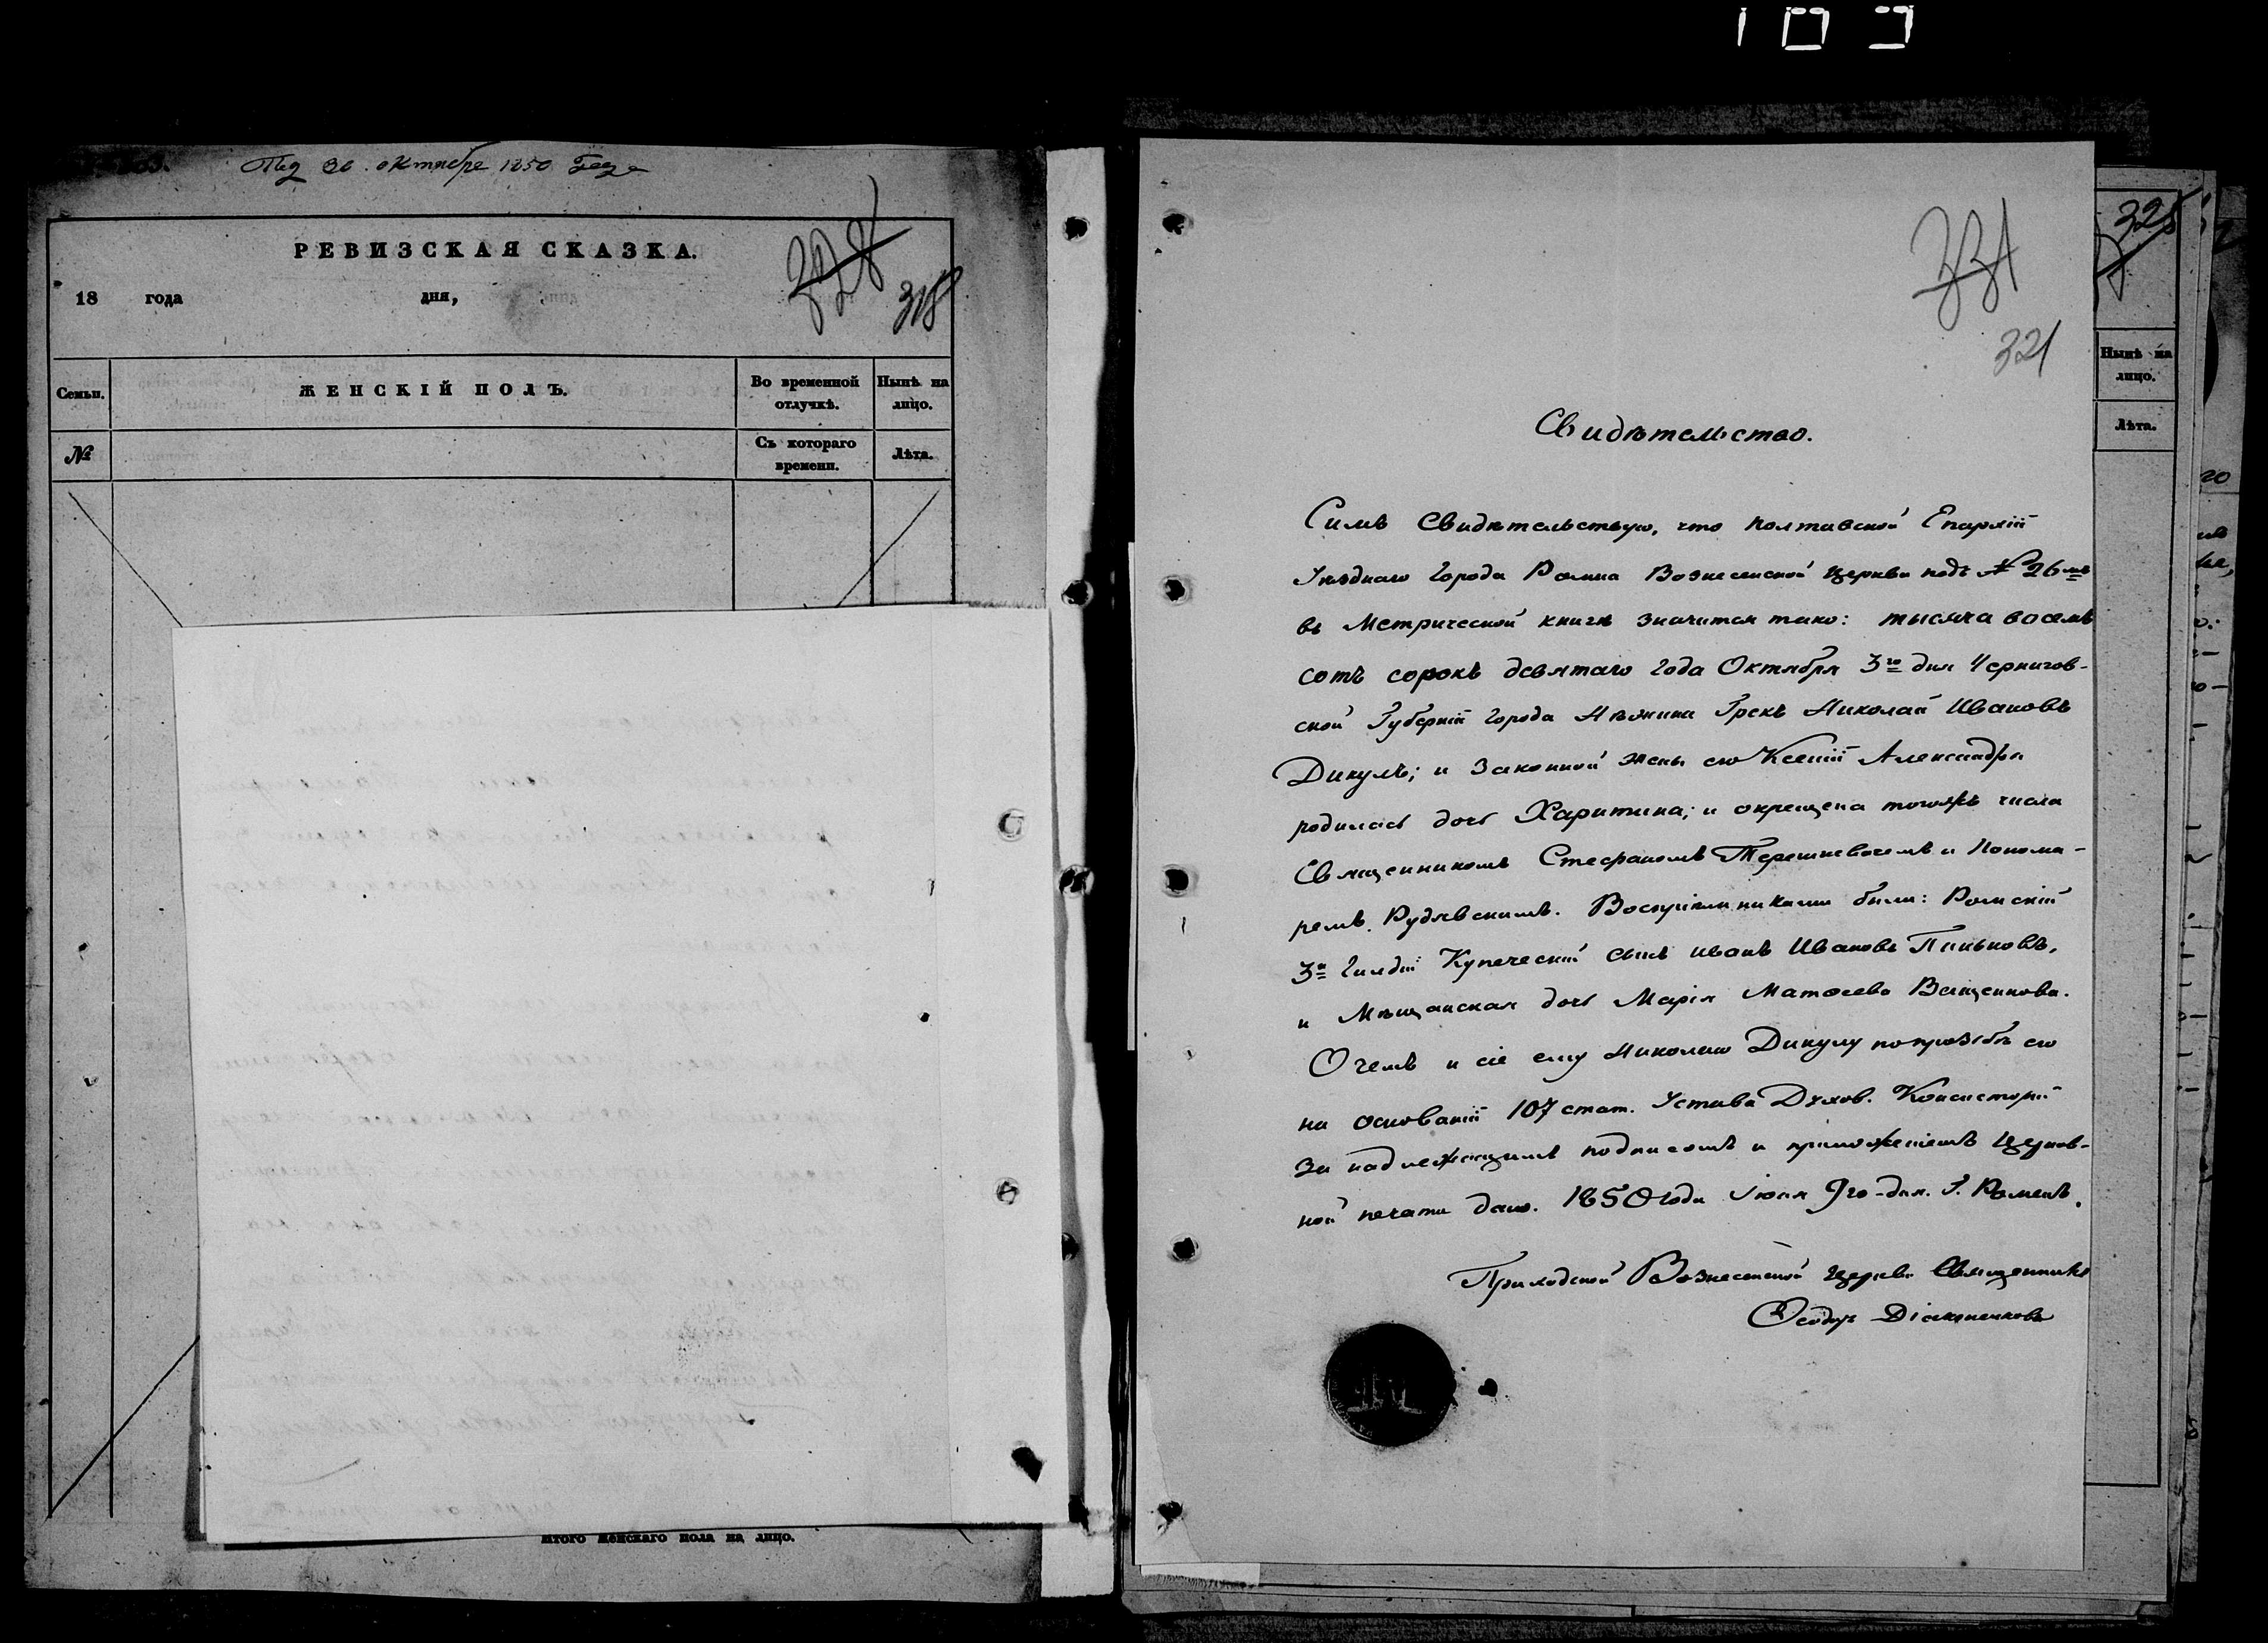 Под 30. октября 1850 Года
РЕВИЗСКАЯ СКАЗКА.
328
318
18 года дня,
Семьи.
ЖЕНСКІЙ ПОЛЪ.
Во временной отлучкѣ.
Нынѣ на лицо.
№
Съ котораго времени.
Лѣта.
Итого женскаго пола на лицо.
331
321
Свидѣтельство.
Симъ Свидѣтельствую, что Полтавской Епархіи
Уѣзднаго Города Ромна Вознесенской Церкви подъ № 26мъ
въ Метрической книгѣ значится тако: тысяча восемь
сотъ сорокъ девятаго года Октября 3го дня Чернигов-
ской Губерніи города Нѣжина Грекъ Николай Ивановъ
Дикулъ; и законной жены его Ксеніи Александры
родилась дочь Харитина; и окрещена тогожъ числа
Священникомъ Стефаномъ Терешкевичемъ и Понома-
ремъ Рудявскимъ. Воспріемниками были: Роменскій
3й Гилдіи Купеческій сынъ иванъ Ивановъ Панковъ,
и Мѣщанская дочь Марія Матѳеева Ващенкова.
О чемъ и сіе ему Николаю Дикулу по прозьбѣ его
на основаніи 107 стат. Устава Духов. Консисторіи
за надлежащимъ подписомъ и приложеніемъ Церков-
ной печати дано. 1850 года Іюля 9го дня. Г. Роменъ.
Приходской Вознесенской Церкви Священникъ
Ѳеодоръ Діаконенковъ
325
Нынѣ на лицо.
Лѣта.